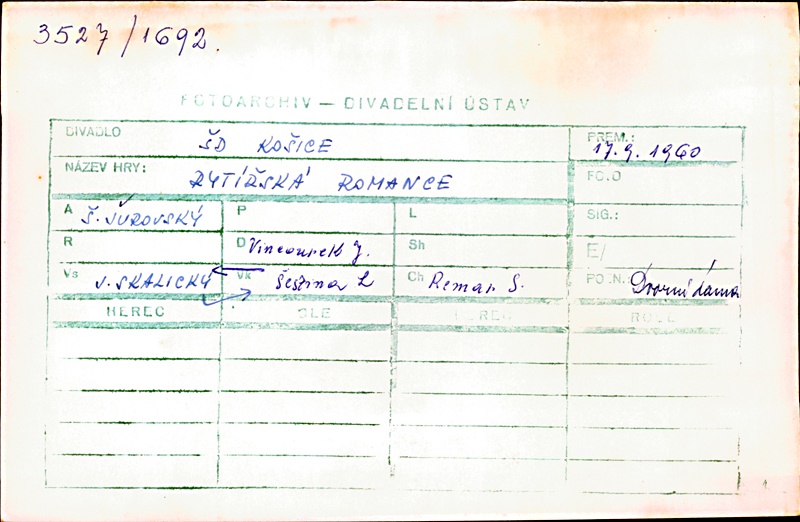 3527/1692.
FOTOARCHIV — DIVADELNÍ ÚSTAV
DIVADLO ŠD KOŠICE PREM.: 17.9.1960
NÁZEV HRY: RYTÍŘSKÁ ROMANCE FOTO
A Š. JUROVSKÝ P L SIG.:
R D Vincourek J. Sh E/
Vs V. SKALICKÝ Vk Šestina L Ch Remar S. POZN.: Dvorní dáma
HEREC ROLE HEREC ROLE